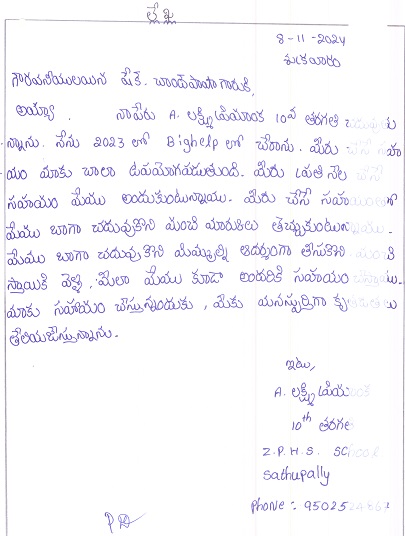 లేఖ
8-11-2024
శుక్రవారం
గౌరవనీయులయిన షేక్. చాంద్‌పాషా గారుకి,
అయ్యా . నాపేరు A. లక్ష్మీప్రియాంక 10వ తరగతి చదువుతు
న్నాను. నేను 2023 లో Bighelp లో చేరాను. మీరు చేసే సహా
యం మాకు చాలా ఉపయోగపడుతుంది. మీరు ప్రతి నెల చేసే
సహాయం మేము అందుకుంటున్నాము. మీరు చేసే సహాయంతో
మేము బాగా చదువుకొని మంచి మార్కులు తెచ్చుకుంటున్నాము.
మేము బాగా చదువుకొని మిమ్మల్ని ఆదర్శంగా తీసుకొని మంచి
స్థాయికి వెళ్ళి, మీలా మేము కూడా అందరికి సహాయం చేస్తాము.
మాకు సహాయం చేస్తున్నందుకు, మీకు మనస్పూర్తిగా కృతజ్ఞతలు
తెలియజేస్తున్నాను.
ఇట్లు,
A. లక్ష్మీప్రియాంక
10th తరగతి
Z.P.H.S. School
Sathupally
Phone : 95025